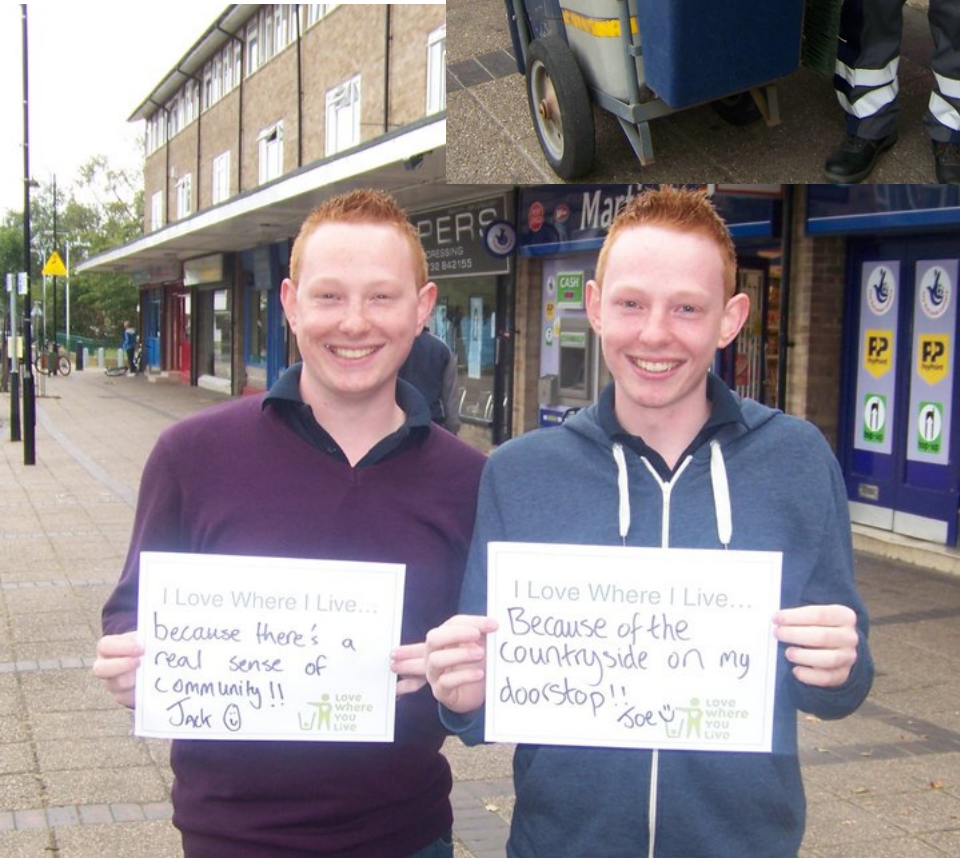 PERS
DRESSING
732 842155
Mar
CASH
PayPoint
PayPoint
top-up
top-up
I Love Where I Live...
because there's a
real sense of
community!!
Jack
LOVE
where
YOU
Live
I Love Where I Live...
Because of the
countryside on my
doorstop!!
Joe
LOVE
where
YOU
Live